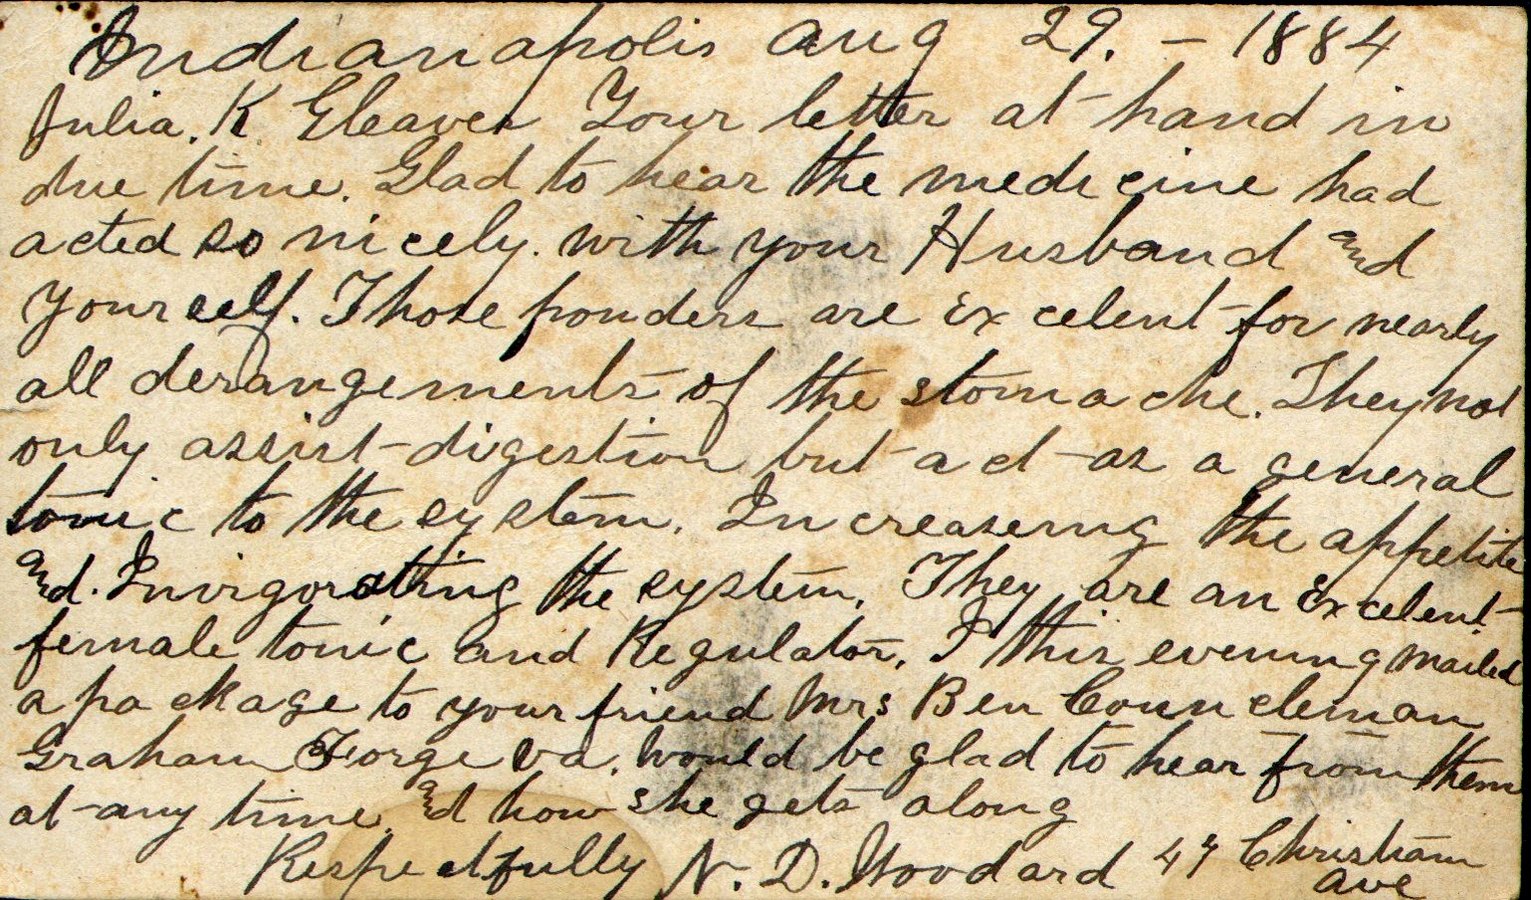 Indianapolis Aug 29. - 1884
Julia. K. Gleaver Your letter at hand in
due time. Glad to hear the medicine had
acted so nicely. with your Husband and
Yourself. Those pouders are Excelent for nearly
all derangements of the stomache. They not
only assist digestion but act as a general
tonic to the system. Increaseing the appetite
and. Invigorating the system. They are an Excelent
female tonic and Regulator. I this evening mailed
a package to your friend Mrs Ben Councleman
Graham Forge Va. would be glad to hear from them
at any time. and how she gets along
Respectfully N. D. Woodard 47 Christian
ave